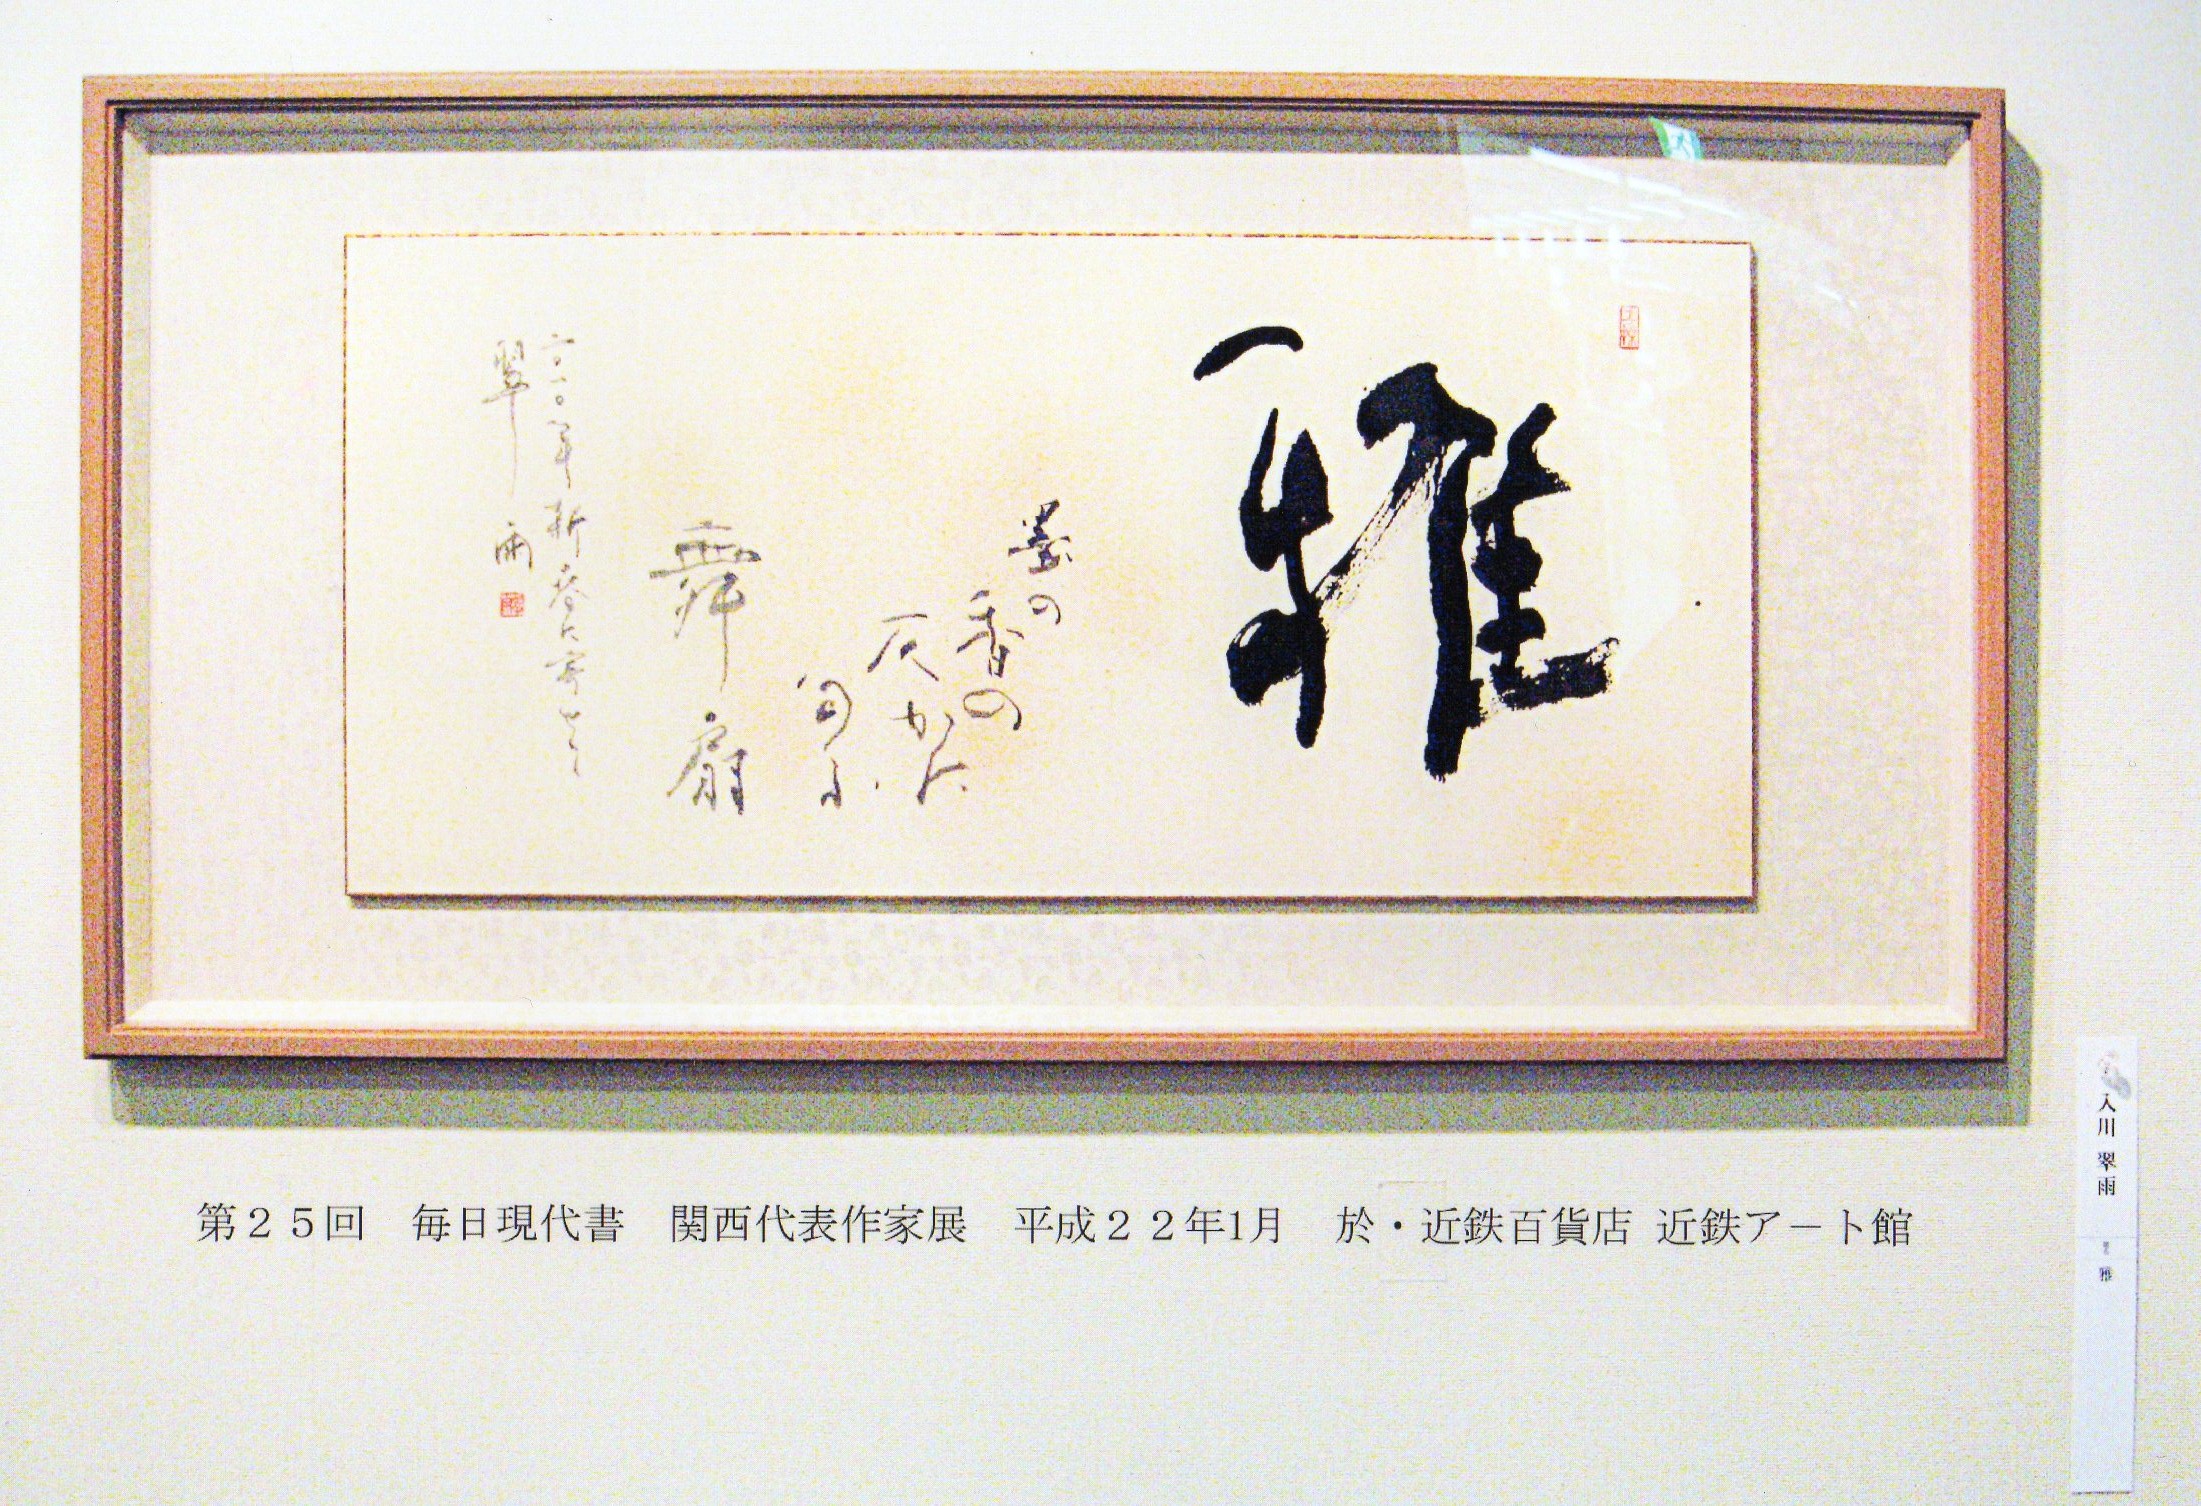 雅
墨の
香の
仄かに
匂ふ
舞扇
二〇一〇年新春に寄せて
翠雨
第２５回　毎日現代書　関西代表作家展　平成２２年1月　於・近鉄百貨店 近鉄アート館
入川 翠雨
雅